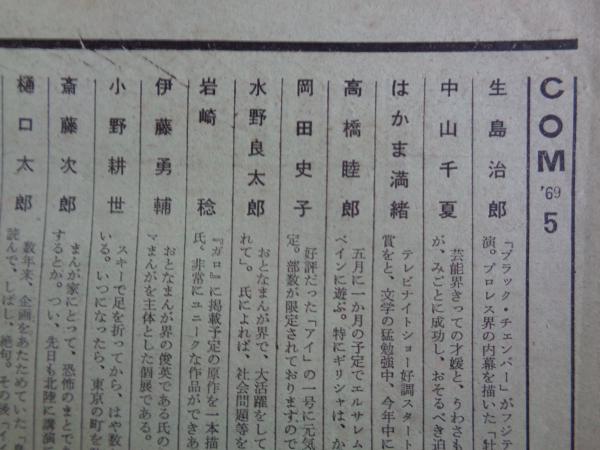 COM '69 5
生島治郎
「ブラック・チェンバー」がフジテ
演。プロレス界の内幕を描いた「牡
中山千夏
芸能界きっての才媛と、うわさも
が、みごとに成功し、おそるべき迫
はかま満緒
テレビナイトショー好調スタート
賞をと、文学の猛勉強中、今年中に
高橋睦郎
五月に一か月の予定でエルサレム
ペインに遊ぶ。特にギリシャは、か
岡田史子
好評だった「アイ」の一号に元気
定。部数が限定されておりますので
水野良太郎
おとなまんが界で、大活躍をして
れて」。氏によれば、社会問題等を
岩崎稔
『ガロ』に掲載予定の原作を一本描
氏、非常にユニークな作品ができあ
伊藤勇輔
おとなまんが界の俊英である氏の
マまんがを主体とした個展である。
小野耕世
スキーで足を折ってから、はや数
いる。いつになったら、東京の町を
斎藤次郎
まんが家にとって、恐怖のまとで
するとか。つい、先日も北陸に講演
樋口太郎
数年来、企画をあたためていた「
読んで、しばし、絶句。その後「イ